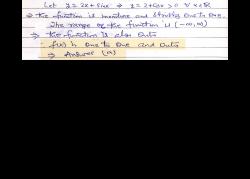 Let y = 2x + sinx ⇒ y' = 2 + cosx > 0 ∀ x∈R
⇒ the function is monotone and strictly one to one.
The range of the function is (-∞, ∞)
⇒ the function is also onto
∴ f(x) is one to one and onto
⇒ Answer (a)